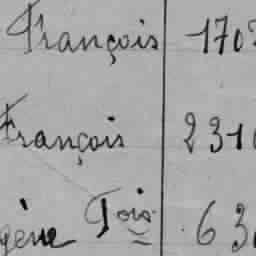 François 170
François 231
gène Fois 63